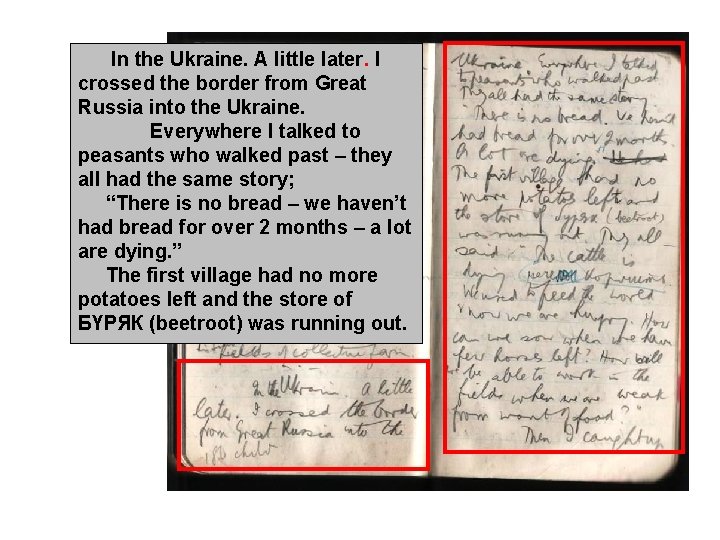 In the Ukraine. A little later. I
crossed the border from Great
Russia into the Ukraine.
Everywhere I talked to
peasants who walked past – they
all had the same story;
“There is no bread – we haven’t
had bread for over 2 months – a lot
are dying.”
The first village had no more
potatoes left and the store of
БУРЯК (beetroot) was running out.
fields of collective farm
In the Ukraine. A little
later. I crossed the border
from Great Russia into the
Ukraine. Everywhere I talked
to peasants who walked past
They all had the same story
"There is no bread. We haven't
had bread for over 2 months.
A lot are dying."
The first village had no
more potatoes left and
the store of (beetroot)
was running out. They all
said "The cattle is
dying
We used to feed the world
now we are hungry. How
can we sow when we have
few horses left? How will
we be able to work in the
fields when we are weak
from want of food?"
Then I caught up